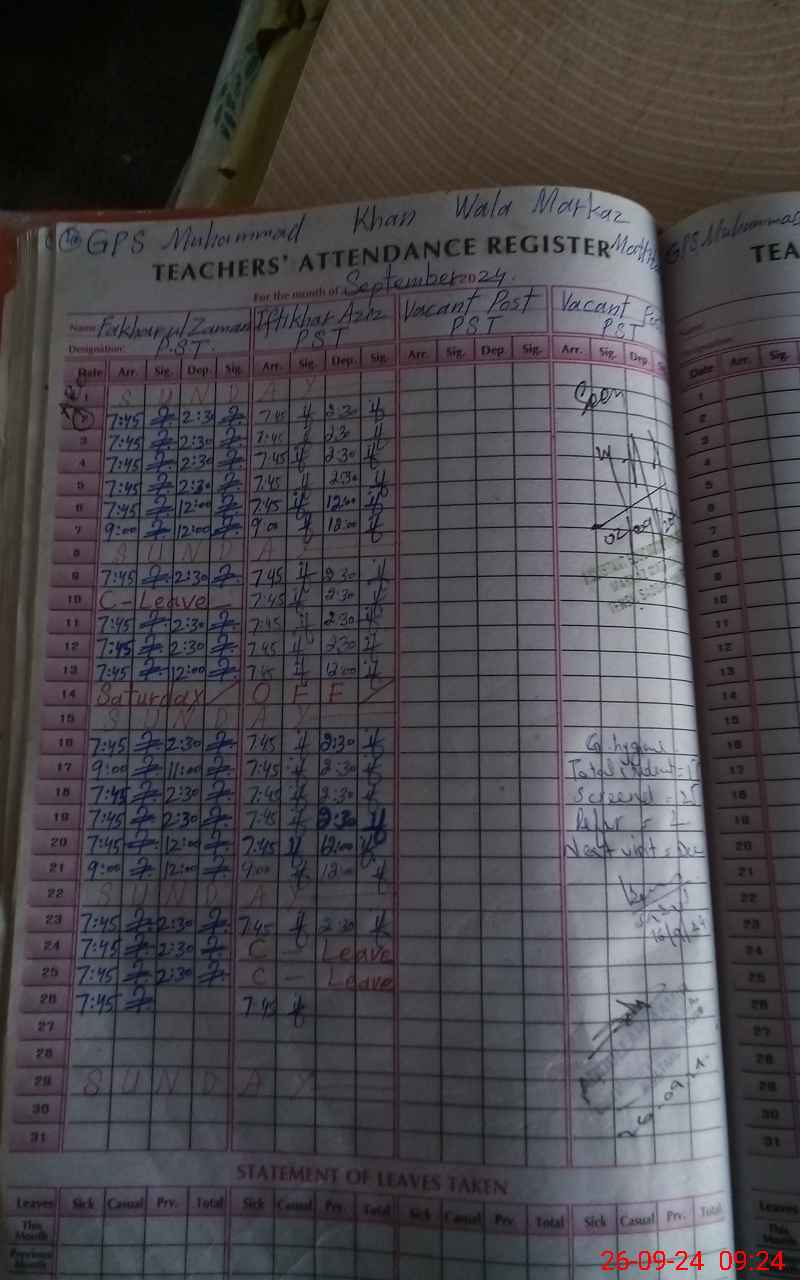 GPS Muhammad Khan Wala Markaz
TEACHERS' ATTENDANCE REGISTER
For the month of September 2024.
Name Fakhar ul Zaman Iftikhar Aziz Vacant Post Vacant
Designation: P.S.T. PST PST PST
Date Arr. Sig. Dep. Sig. Arr. Sig. Dep. Sig. Arr. Sig. Dep. Sig. Arr. Sig. Dep.
1 S U N D A Y
2 7:45 2:30 7:45 2:30
3 7:45 2:30 7:45 2:30
4 7:45 2:30 7:45 2:30
5 7:45 2:30 7:45 2:30
6 7:45 12:00 7:45 12:00
7 9:00 12:00 9:00 12:00
8 S U N D A Y
9 7:45 2:30 7:45 2:30
10 C - Leave 7:45 2:30
11 7:45 2:30 7:45 2:30
12 7:45 2:30 7:45 2:30
13 7:45 12:00 7:45 12:00
14 Saturday O F F
15 S U N D A Y
16 7:45 2:30 7:45 2:30
17 9:00 11:00 7:45 2:30 Total student
18 7:45 2:30 7:45 2:30
19 7:45 2:30 7:45 2:30
20 7:45 12:00 7:45 12:00 Next visit
21 9:00 12:00 9:00 12:00
22 S U N D A Y
23 7:45 2:30 7:45 2:30
24 7:45 2:30 C - Leave
25 7:45 2:30 C - Leave
26 7:45 7:45
27
28
29 S U N D A Y
30
31
STATEMENT OF LEAVES TAKEN
Leaves Sick Casual Prv. Total Sick Casual Prv. Total Sick Casual Prv. Total Sick Casual Prv. Total
This Month
Previous Month
GPS Muhammad
TEA
Date Arr. Sig.
1
2
3
4
5
6
7
8
9
10
11
12
13
14
15
16
17
18
19
20
21
22
23
24
25
26
27
28
29
30
31
Leaves
This Month
26-09-24 09:24